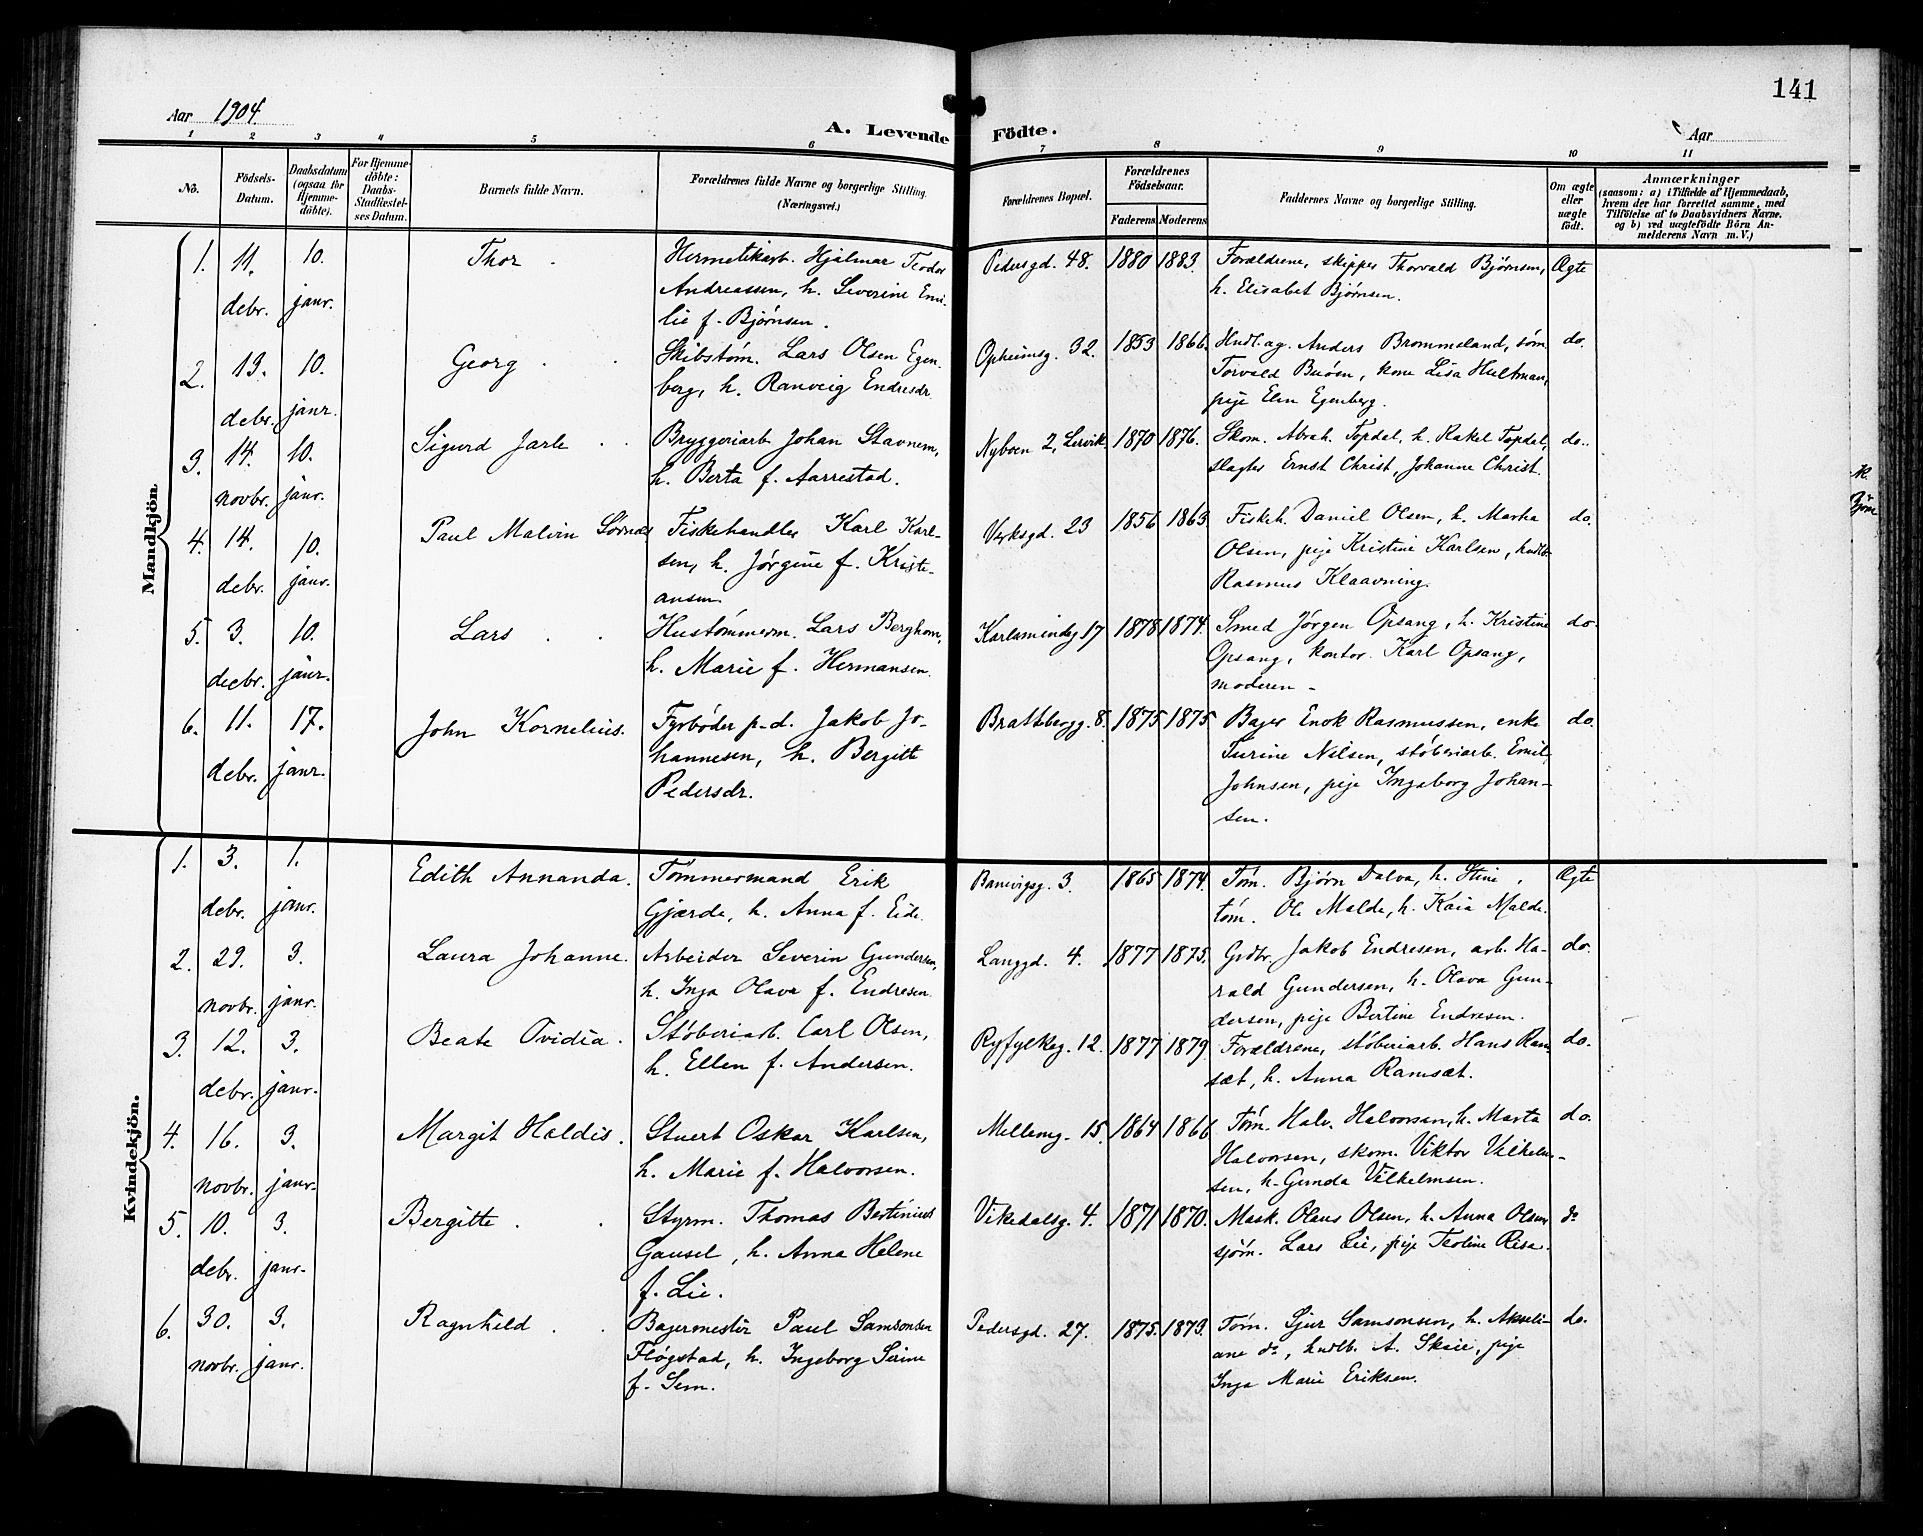 141
Aar 1904.
A. Levende Födte.
Aar
1 2 3 4 5 6 7 8 9 10 11
No.
Födsels-Datum.
Daabsdatum (ogsaa for Hjemme-döbte).
For Hjemme-döbte: Daabs-Stadfæstel-ses Datum.
Barnets fulde Navn.
Forældrenes fulde Navne og borgerlige Stilling.
(Næringsvei.)
Forældrenes Bopæl.
Forældrenes Födselsaar.
Faderens Moderens
Faddernes Navne og borgerlige Stilling.
Om ægte eller uægte födt.
Anmærkninger
(saasom: a) i Tilfælde af Hjemmedaab,
hvem der har forrettet samme, med
Tilföielse af to Daabsvidners Navne.
og b) ved uægtefödte Börn An-
melderens Navn m. V.)
Mandkjön
1. 11. 10. Thor . Hermetikarb. Hjalmar Teodor Pedersgd. 48. 1880 1883. Forældrene, skipper Thorvald Bjørnsen, Ægte
debr. janr. Andreassen, h. Severine Emi- h. Elisabet Bjørnsen.
lie f. Bjørnsen.
2. 13. 10. Georg . . Skibstøm. Lars Olsen Egen- Opheimsg. 32. 1853 1866. Hndl. ag. Anders Brommeland, søm. do.
debr. janr. berg, h. Ranveig Endresdr. Torvald Buöen, kone Lisa Hultman,
pige Elen Egenberg.
3. 14. 10. Sigurd Jarle . . Bryggeriarb. Johan Stavnem, Nyboen 2, Lervik. 1870 1876. Skom. Abrah. Topdal, h. Rakel Topdal, do.
novbr. janr. h. Berta f. Aarrestad. slagter Ernst Christ, Johanne Christ.
4. 14. 10. Paul Malvin Sörnes Fiskehandler Karl Karl- Verksgd. 23 1856 1863. Fiskeh. Daniel Olsen, h. Marta do.
debr. janr. sen, h. Jørgine f. Kristi- Olsen, pige Kristine Karlsen, hndlb.
ansen. Rasmus Klaavning.
5. 3. 10. Lars . . Hustømmerm. Lars Berghom, Karlamindeg 17 1878 1874. Smed Jørgen Opsang, h. Kristine do.
decbr. janr. h. Marie f. Hermansen. Opsang, kontor. Karl Opsang,
moderen -
6. 11. 17. John Kornelius. Fyrbøder p.d. Jakob Jo- Brattbergg. 8. 1875 1875 Bager Enok Rasmussen, enke do.
debr. janr. hannesen, h. Bergitte Turine Nilsen, støberiarb. Emil
Pedersdr. Johnsen, pige Ingeborg Johan-
sen.
Kvindekjön.
1. 3. 1. Edith Annanda. Tømmermand Erik Banevigsg. 3. 1865 1874. Tøm. Bjørn Dalva, h. Stine, Ægte
debr. janr. Gjærde, h. Anna f. Eide. tøm. Ole Malde, h. Kaia Malde.
2. 29. 3. Laura Johanne. Arbeider Severin Gundersen, Langgd. 4. 1877 1875. Grdbr. Jakob Endresen, arb. Ha- do.
novbr. janr. h. Inga Olava f. Endresen. rald Gundersen, h. Olava Gun-
dersen, pige Bertine Endresen.
3. 12. 3. Beate Ovidia. Støberiarb. Carl Olsen, Ryfylkeg. 12. 1877 1879. Forældrene, støberiarb. Hans Ram- do.
debr. janr. h. Ellen f. Andersen. sæt, h. Anna Ramsæt.
4. 16. 3. Margit Haldis. Stuert Oskar Karlsen, Mellemg. 15. 1864 1866 Tøm. Halv. Halvorsen, h. Marta do.
novbr. janr. h. Marie f. Halvorsen. Halvorsen, skom. Viktor Vilhelm-
sen, h. Gunda Vilhelmsen.
5. 10. 3. Bergitte . . Styrm. Thomas Bertinius Vikedalsg. 4. 1871 1870. Mask. Olaus Olsen, h. Anna Olsen do
debr. janr. Gausel, h. Anna Helene sjøm. Lars Lie, pige Teoline Risa.
f. Lie.
6. 30. 3. Ragnhild . . Bagermester Paul Samsonsen Pedersgd. 27. 1875. 1873. Tøm. Sjur Samsonsen, h. Akseli- do.
novbr. janr. Fløgstad, h. Ingeborg Sirine ane do, hndlb. A. Skeie, pige
f. Sem. Inga Marie Eriksen.